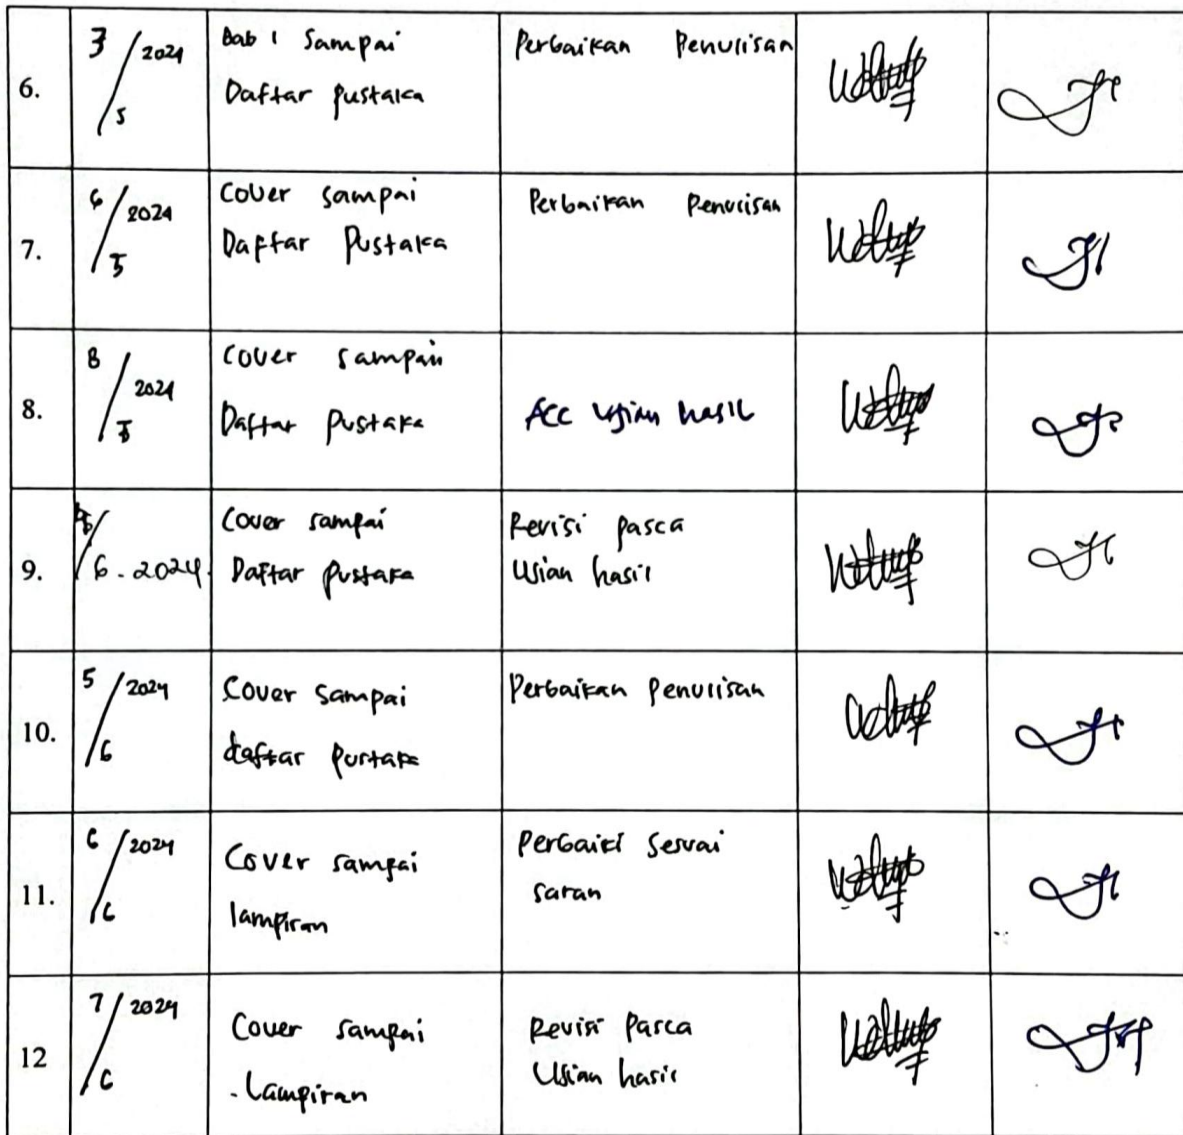 6.
3/5 2024
Bab 1 Sampai
Daftar pustaka
Perbaikan Penulisan
7.
6/5 2024
Cover sampai
Daftar Pustaka
Perbaikan Penulisan
8.
8/5 2024
Cover sampai
Daftar Pustaka
Acc Ujian hasil
9.
/6 - 2024
Cover sampai
Daftar pustaka
Revisi pasca
Ujian hasil
10.
5/6 2024
Cover Sampai
daftar pustaka
Perbaikan penulisan
11.
6/6 2024
Cover sampai
lampiran
Perbaiki Sesuai
saran
12
7/6 2024
Cover sampai
Lampiran
Revisi Pasca
Ujian hasil